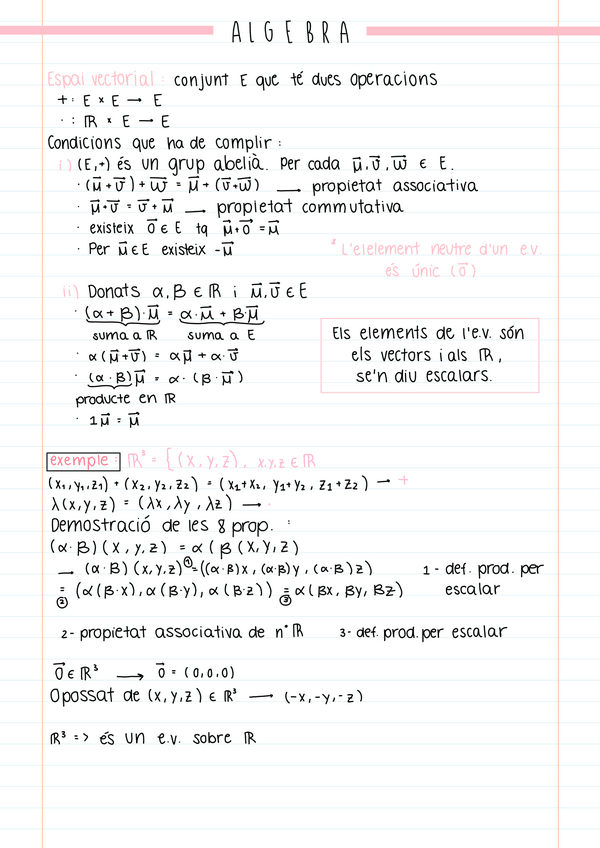 ALGEBRA
Espai vectorial: conjunt E que té dues operacions
+: E × E → E
· : ℝ × E → E
Condicions que ha de complir:
i) (E,+) és un grup abelià. Per cada μ⃗, v⃗, w⃗ ∈ E.
· (μ⃗ + v⃗) + w⃗ = μ⃗ + (v⃗+w⃗) — propietat associativa
· μ⃗+v⃗ = v⃗+μ⃗ — propietat commutativa
· existeix 0⃗ ∈ E tq μ⃗+0⃗ = μ⃗
· Per μ⃗ ∈ E existeix -μ⃗
* L'elelement neutre d'un e.v.
és únic (0⃗)
ii) Donats α, β ∈ ℝ i μ⃗, v⃗ ∈ E
· (α + β)·μ⃗ = α·μ⃗ + β·μ⃗
suma a ℝ suma a E
· α(μ⃗+v⃗) = αμ⃗ + α·v⃗
· (α·β)μ⃗ = α·(β·μ⃗)
producte en ℝ
· 1μ⃗ = μ⃗
Els elements de l'e.v. són
els vectors i als ℝ,
se'n diu escalars.
exemple: ℝ³ = {(x,y,z), x,y,z ∈ ℝ
(x₁,y₁,z₁) + (x₂,y₂,z₂) = (x₁+x₂, y₁+y₂, z₁+z₂) → +
λ(x,y,z) = (λx,λy,λz) → ·
Demostració de les 8 prop. :
(α·β)(x,y,z) = α(β(x,y,z)
→ (α·β)(x,y,z) ①= ((α·β)x, (α·β)y, (α·β)z) 1- def. prod. per
= ② (α(β·x), α(β·y), α(β·z)) = ③ α(βx, βy, βz) escalar
2- propietat associativa de nº ℝ 3- def. prod. per escalar
0⃗ ∈ ℝ³ → 0⃗ = (0,0,0)
Opossat de (x,y,z) ∈ ℝ³ → (-x,-y,-z)
ℝ³ => és un e.v. sobre ℝ